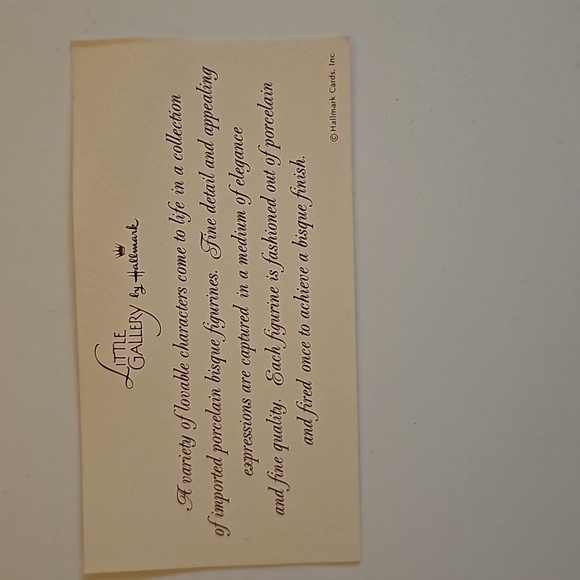 LITTLE
GALLERY by Hallmark
A variety of lovable characters come to life in a collection
of imported porcelain bisque figurines. Fine detail and appealing
expressions are captured in a medium of elegance
and fine quality. Each figurine is fashioned out of porcelain
and fired once to achieve a bisque finish.
© Hallmark Cards, Inc.